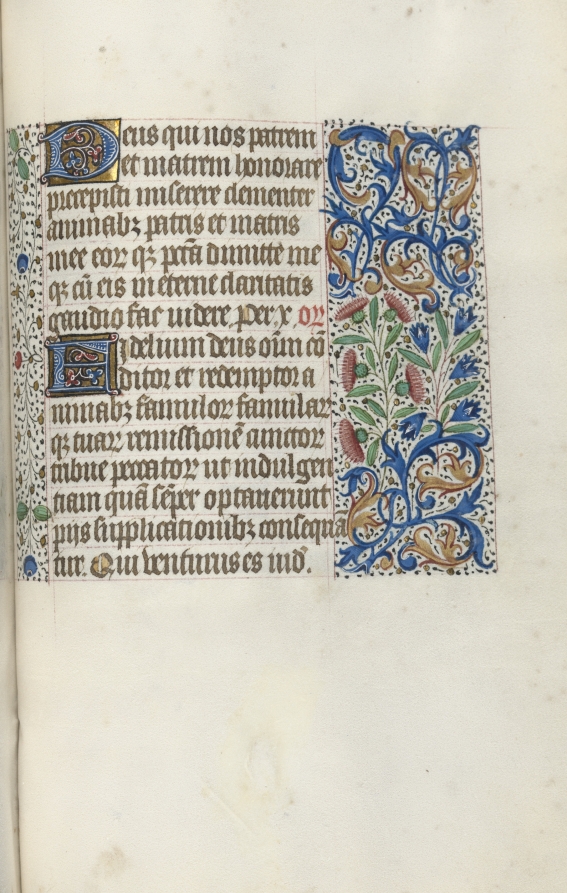 Deus qui nos patrem
et matrem honorare
precepisti miserere clementer
aīabꝫ patris et matris
mee eoꝝ qꝫ pctā dimitte me
qꝫ cū eis in eterne claritatis
gaudio fac videre. Per x. or̄
Fidelium deus oīm co
nditor et redemptor a
nimabꝫ famuloꝝ famulaꝝ
qꝫ tuaꝝ remissionē cunctoꝝ
tribue peccatoꝝ ut indulgen
tiam quā semꝑ optauerunt
pijs supplicationibꝫ consequā
tur. Qui venturus es iud̄.